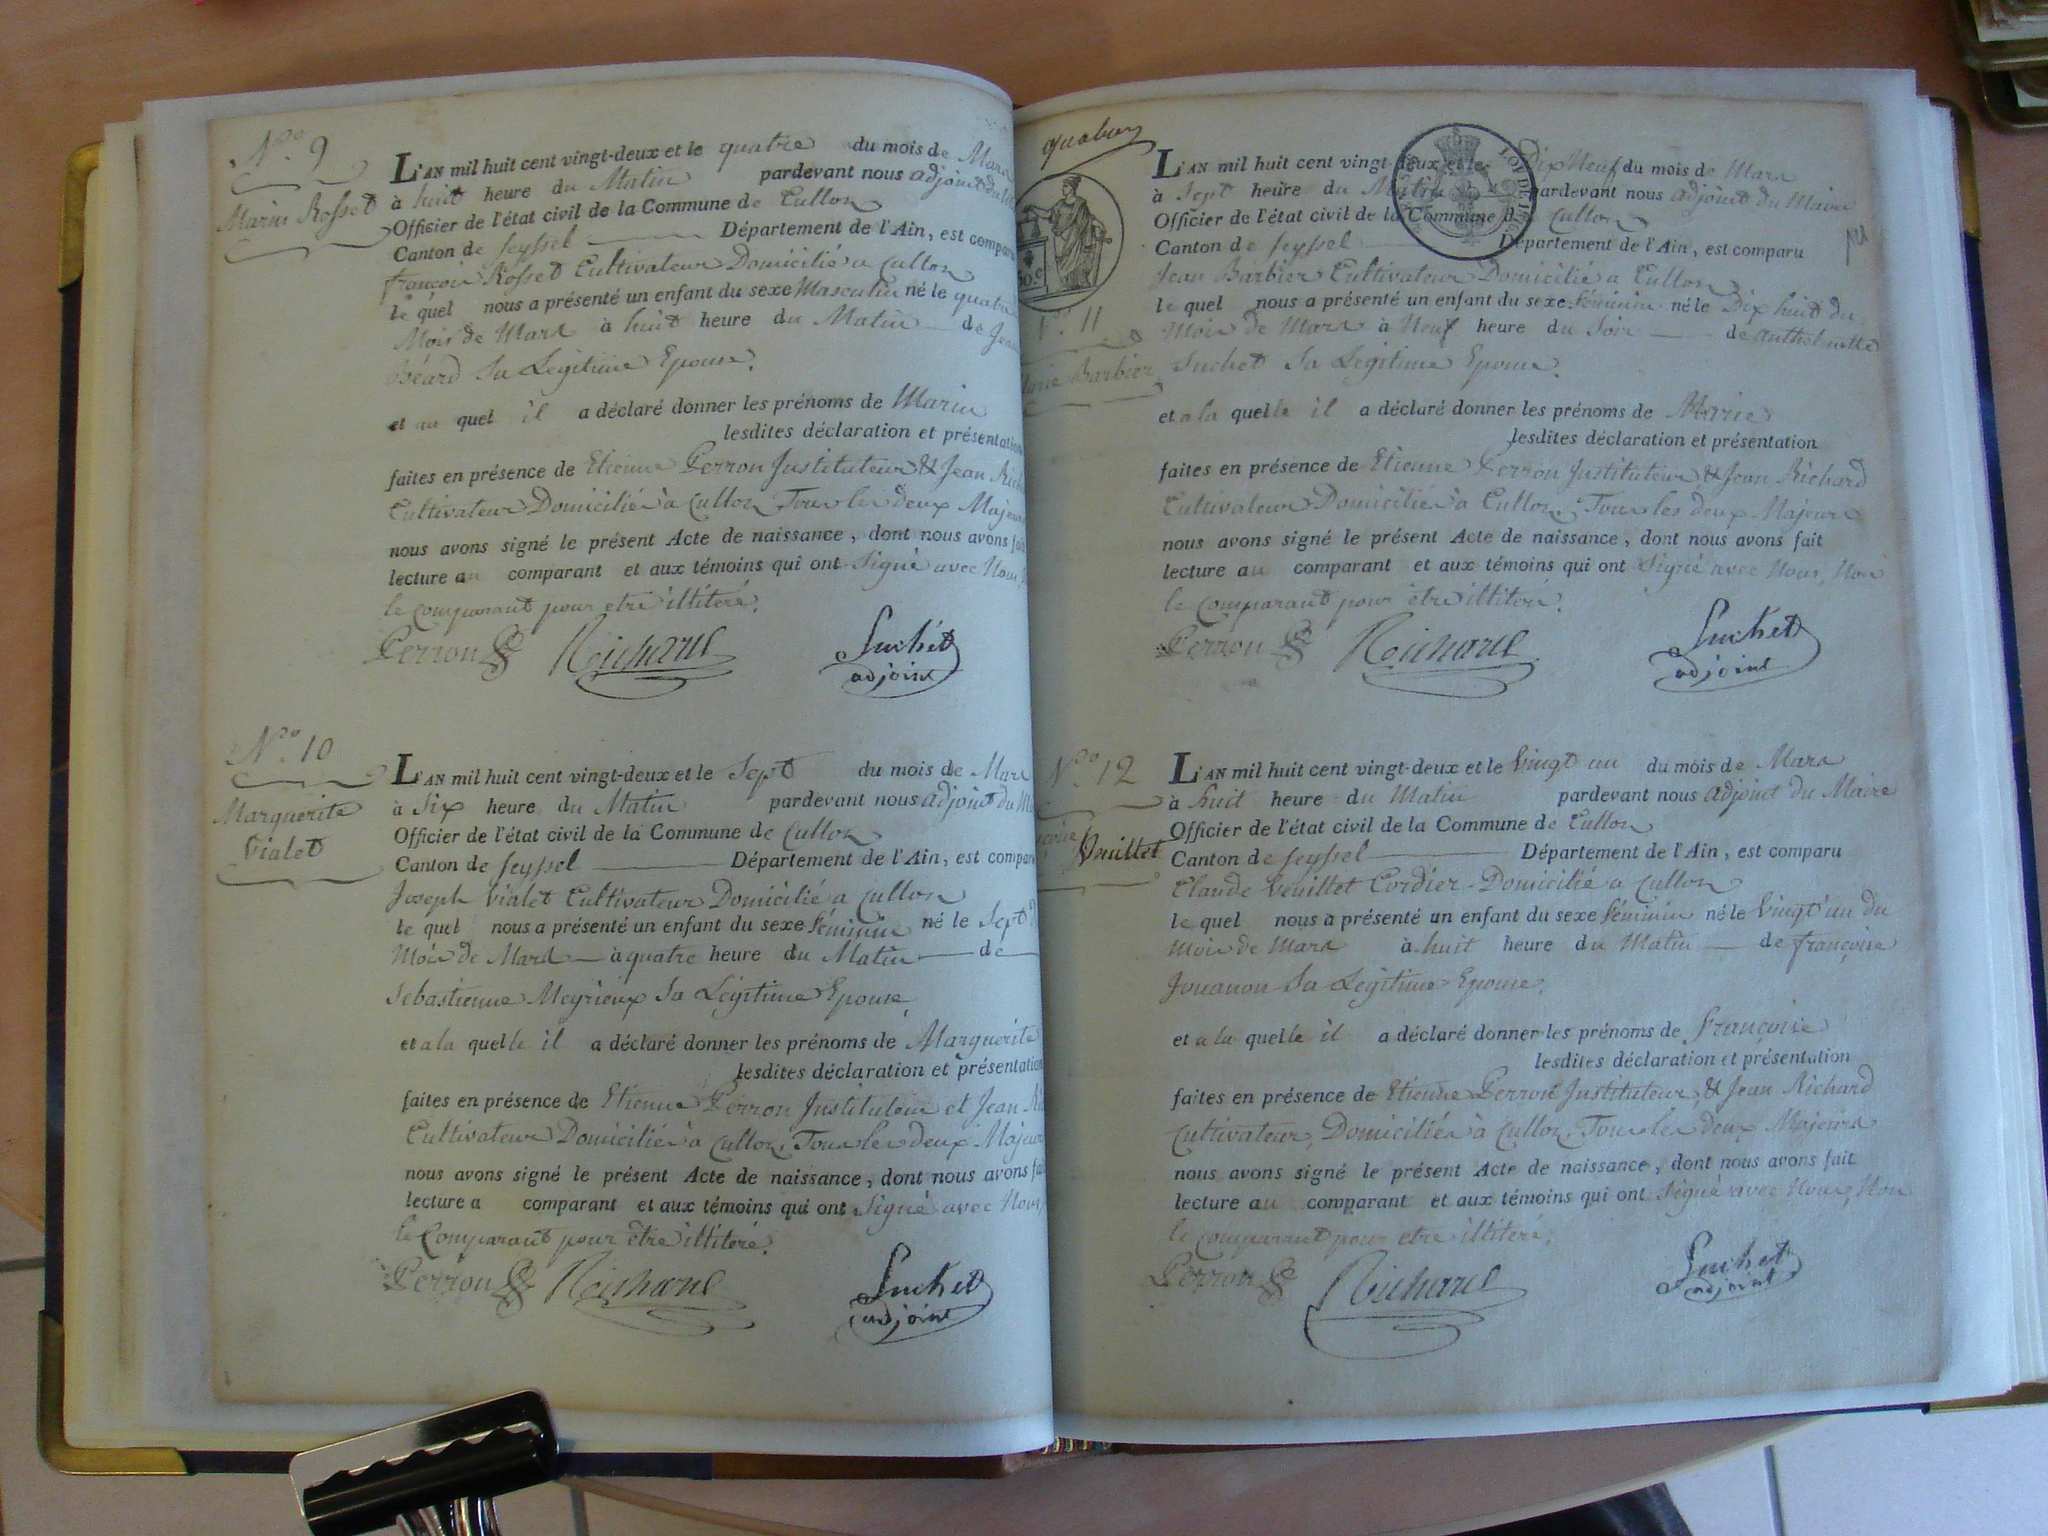 Nro. 9
Marin Rosset
L'AN mil huit cent vingt-deux et le quatre du mois de Mars
à huit heure du Matin pardevant nous adjoint du
Officier de l'état civil de la Commune de Cullon
Canton de Seyssel Département de l'Ain, est comparu
françois Rosset Cultivateur Domicilié a Cullon
le quel nous a présenté un enfant du sexe Masculin né le quatre
Mois de Mars à huit heure du Matin de
Béard Sa Légitime Epouse.
et au quel il a déclaré donner les prénoms de Marin
lesdites déclaration et présentation
faites en présence de Etienne Perron Instituteur & Jean
Cultivateur Domiciliés à Cullon, Tous les deux Majeurs
nous avons signé le présent Acte de naissance, dont nous avons fait
lecture au comparant et aux témoins qui ont Signé avec Nous
le Comparant pour etre illitéré.
Perron Richard Suchet
adjoint
Nro. 10
Marguerite
Vialet
L'AN mil huit cent vingt-deux et le Sept du mois de Mars
à Six heure du Matin pardevant nous adjoint du
Officier de l'état civil de la Commune de Cullon
Canton de Seyssel Département de l'Ain, est comparu
Joseph Vialet Cultivateur Domicilié a Cullon
le quel nous a présenté un enfant du sexe féminin né le Sept
Mois de Mars à quatre heure du Matin de
Sebastienne Meyrieux Sa Légitime Epouse,
et a la quelle il a déclaré donner les prénoms de Marguerite
lesdites déclaration et présentation
faites en présence de Etienne Perron Instituteur et Jean
Cultivateur Domiciliés à Cullon, Tous les deux Majeurs
nous avons signé le présent Acte de naissance, dont nous avons
lecture a comparant et aux témoins qui ont Signé avec Nous
le Comparant pour être illitéré.
Perron Richard Suchet
adjoint
11
Marie Barbier
L'AN mil huit cent vingt-deux et le Dix Neuf du mois de Mars
à Sept heure du Matin pardevant nous adjoint du Maire
Officier de l'état civil de la Commune de Cullon
Canton de Seyssel Département de l'Ain, est comparu
Jean Barbier Cultivateur Domicilié a Cullon
le quel nous a présenté un enfant du sexe féminin né le Dix huit du
Mois de Mars à Neuf heure du Soir de anthelmette
Suchet Sa Légitime Epouse.
et a la quelle il a déclaré donner les prénoms de Marie
lesdites déclaration et présentation
faites en présence de Etienne Perron Instituteur & Jean Richard
Cultivateur Domiciliés à Cullon, Tous les deux Majeurs
nous avons signé le présent Acte de naissance, dont nous avons fait
lecture au comparant et aux témoins qui ont Signé avec Nous, Non
le Comparant pour être illitéré.
Perron Richard Suchet
adjoint
Nro. 12
Vuillet
L'AN mil huit cent vingt-deux et le Vingt un du mois de Mars
à huit heure du Matin pardevant nous adjoint du Maire
Officier de l'état civil de la Commune de Cullon
Canton de Seyssel Département de l'Ain, est comparu
Claude Veuillet Cordier Domicilié a Cullon
le quel nous a présenté un enfant du sexe féminin né le Vingt un du
Mois de Mars à huit heure du Matin de françoise
Jouanon Sa Légitime Epouse.
et a la quelle il a déclaré donner les prénoms de françoise
lesdites déclaration et présentation
faites en présence de Etienne Perron Instituteur, & Jean Richard
Cultivateur, Domiciliés à Cullon, Tous les deux Majeurs
nous avons signé le présent Acte de naissance, dont nous avons fait
lecture au comparant et aux témoins qui ont Signé avec Nous, Non
le Comparant pour etre illitéré.
Perron Richard Suchet
adjoint